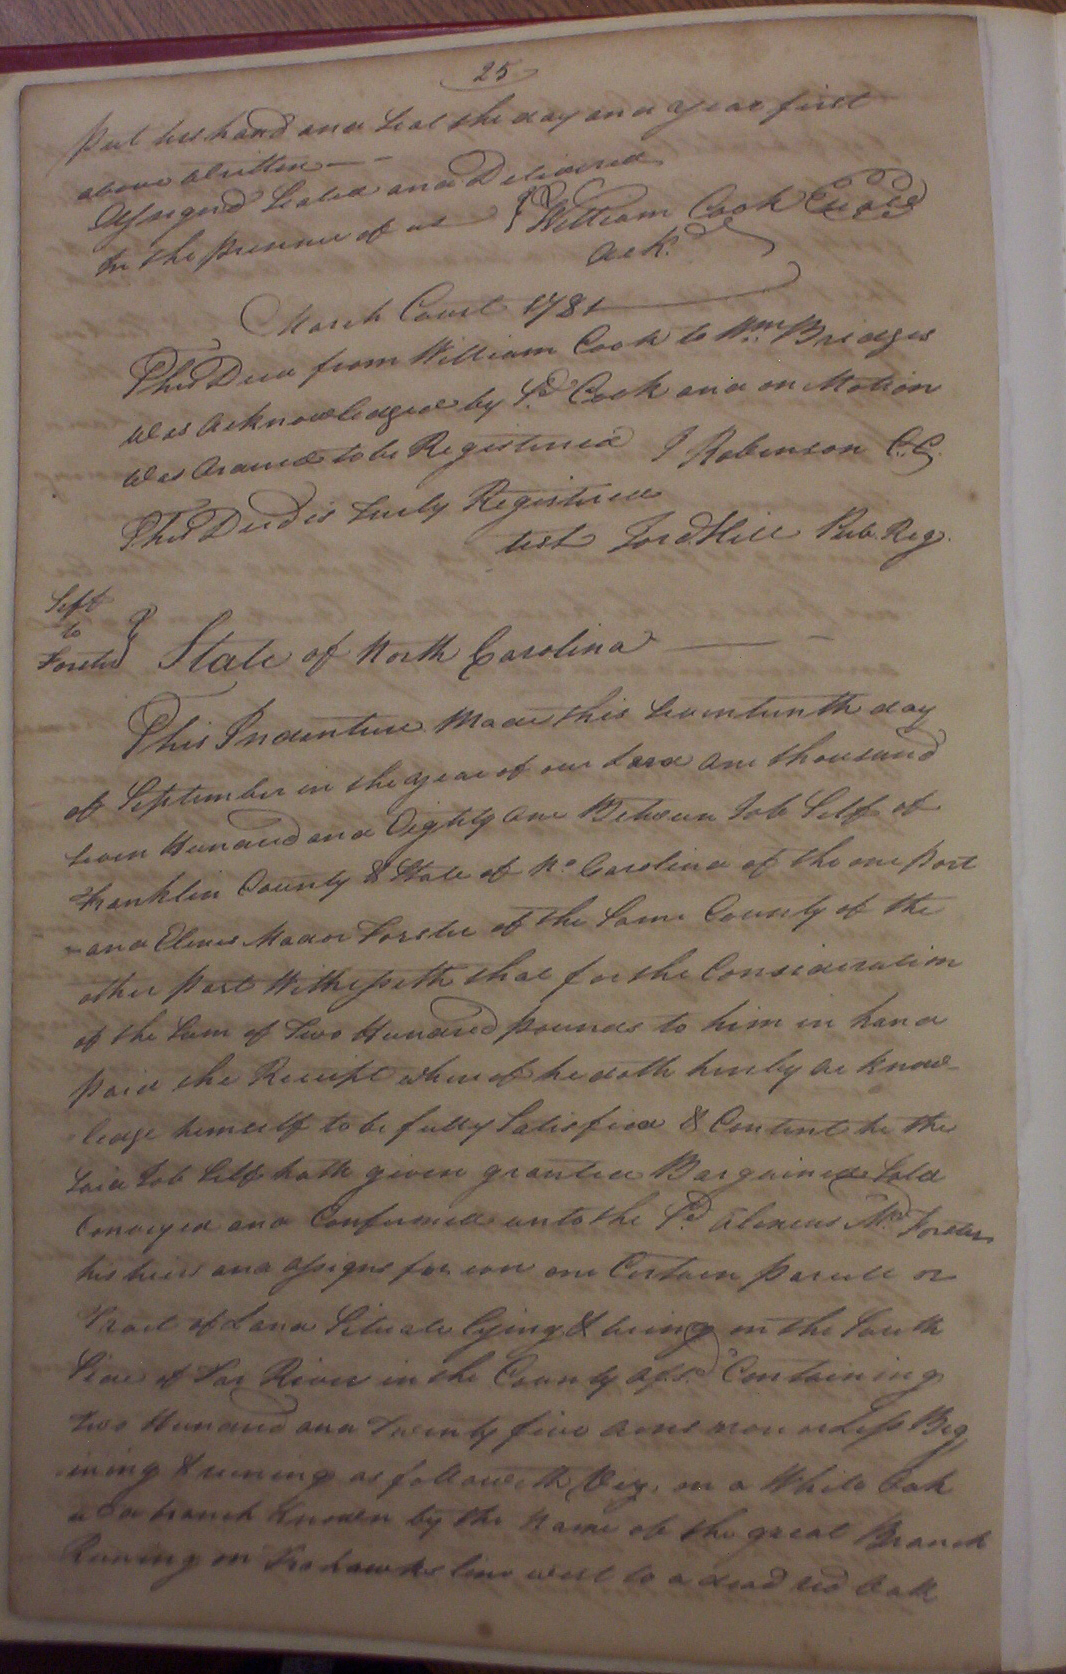 25
put his hand and Seal the day and year first
above written
Assigned Sealed and Delivered
In the presence of us } William Cook Seal
ack.
March Court 1781
This Deed from William Cook to Wm. Bridges
was acknowledged by Sd. Cook and on Motion
was Ordered to be Registered J Robinson C.C.
This Deed is truly Registered
test Jord. Hill Pub. Reg.
Self
to
Forster } State of North Carolina
This Indenture Made this Seventeenth day
of September in the year of our Lord One thousand
Seven Hundred and Eighty One Between Job Self of
Franklin County & State of No. Carolina of the one part
and Mador Forster of the Same County of the
other part Witnesseth that for the Consideration
of the Sum of Two Hundred pounds to him in hand
paid the Receipt whereof he doth hereby acknow-
ledge himself to be fully Satisfied & Content he the
Said Job Self hath given granted Bargained Sold
Conveyed and Confirmed unto the Sd. Md. Forster
his heirs and assigns for ever one Certain parcell or
Tract of Land Situate lying & being on the South
Side of Tar River in the County afsd. Containing
two Hundred and Twenty five acres more or less Beg
inning & runing as followeth Viz. on a White Oak
a branch Known by the Name of the great Branch
Runing on line west to a dead red Oak